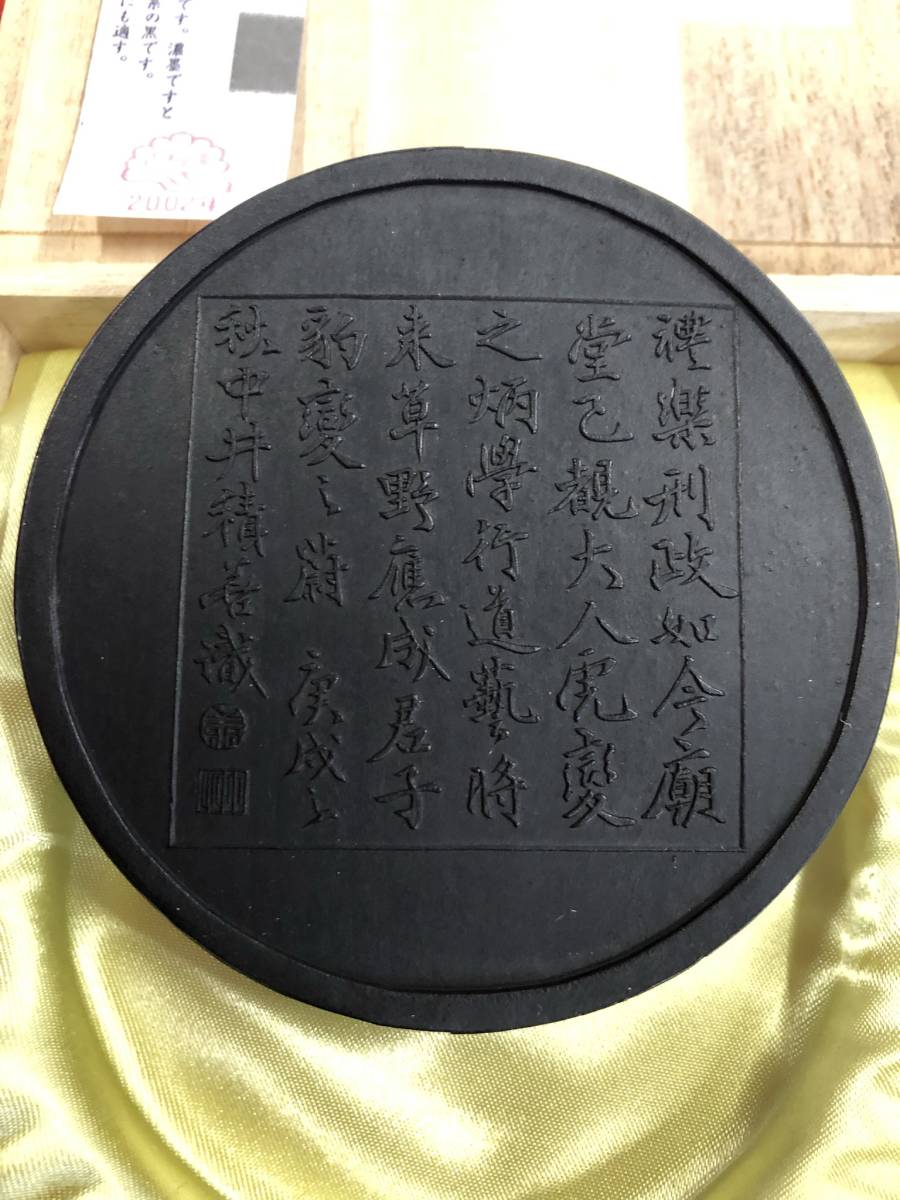 禮樂刑政如今廟
堂已觀大人虎變
之炳學行道藝將
来草野應成君子
豹變之蔚 庚戌之
秋中井積善識
です。濃墨ですと
系の黒です。
にも適す。